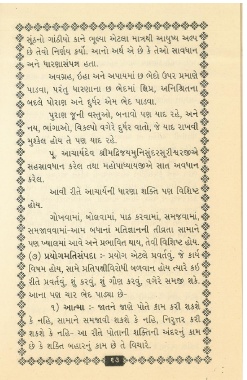 સુંઠનો ગાંઠીપો કાને ભૂલ્યા એટલા માત્રથી આયુષ્ય અલ્પ
છે તેવો નિર્ણય કર્યો. આનો અર્થ એ છે કે તેઓ સાવધાન
અને ધારણાસંપન્ન હતા.
અવગ્રહ, ઇહા અને અપાયમાં છ ભેદો ઉપર પ્રમાણે
પાડવા, પરંતુ ધારણાના છ ભેદમાં ક્ષિપ્ર, અનિશ્રિતના
બદલે પોરાણ અને દુર્ધર એમ ભેદ પાડવા.
પુરાણ જૂની વસ્તુઓ, બનાવો પણ યાદ રહે, અને
નય, ભાંગાઓ, વિકલ્પો વગેરે દુર્ધર વાતો, જે યાદ રાખવી
મુશ્કેલ હોય તે પણ યાદ રહે.
પૂ. આચાર્યદેવ શ્રીમદ્વિજયમુનિસુંદરસૂરીશ્વરજીએ
સહસ્રાવધાન કરેલ તથા મહોપાધ્યાયજીએ સાત અવધાન
કરેલ.
આવી રીતે આચાર્યની ધારણા શક્તિ પણ વિશિષ્ટ
હોય.
ગોખવામાં, બોલવામાં, પાઠ કરવામાં, સમજવામાં,
સમજાવવામાં-આમ બધાનાં મતિજ્ઞાનની તીવ્રતા સામાને
પણ ખ્યાલમાં આવે અને પ્રભાવિત થાય, તેવી વિશિષ્ટ હોય.
(૭) પ્રયોગમતિસંપદા :- પ્રયોગ એટલે પ્રવર્તવું. જે કાર્ય
વિષમ હોય, સામે પ્રતિપક્ષીવિરોધી બળવાન હોય ત્યારે કઈ
રીતે પ્રવર્તવું, શું કરવું, શું ગૌણ કરવું, વગેરે સમજી શકે.
આના પણ ચાર ભેદ પાડ્યા છે-
૧) આત્મા :- જાતને જાણે પોતે કામ કરી શકશે
કે નહિ, સામાને સમજાવી શકશે કે નહિ, નિરુત્તર કરી
શકશે કે નહિ- આ રીતે પોતાની શક્તિની અંદરનું કામ
છે કે શક્તિ બહારનું કામ છે તે વિચારે.
૬૩